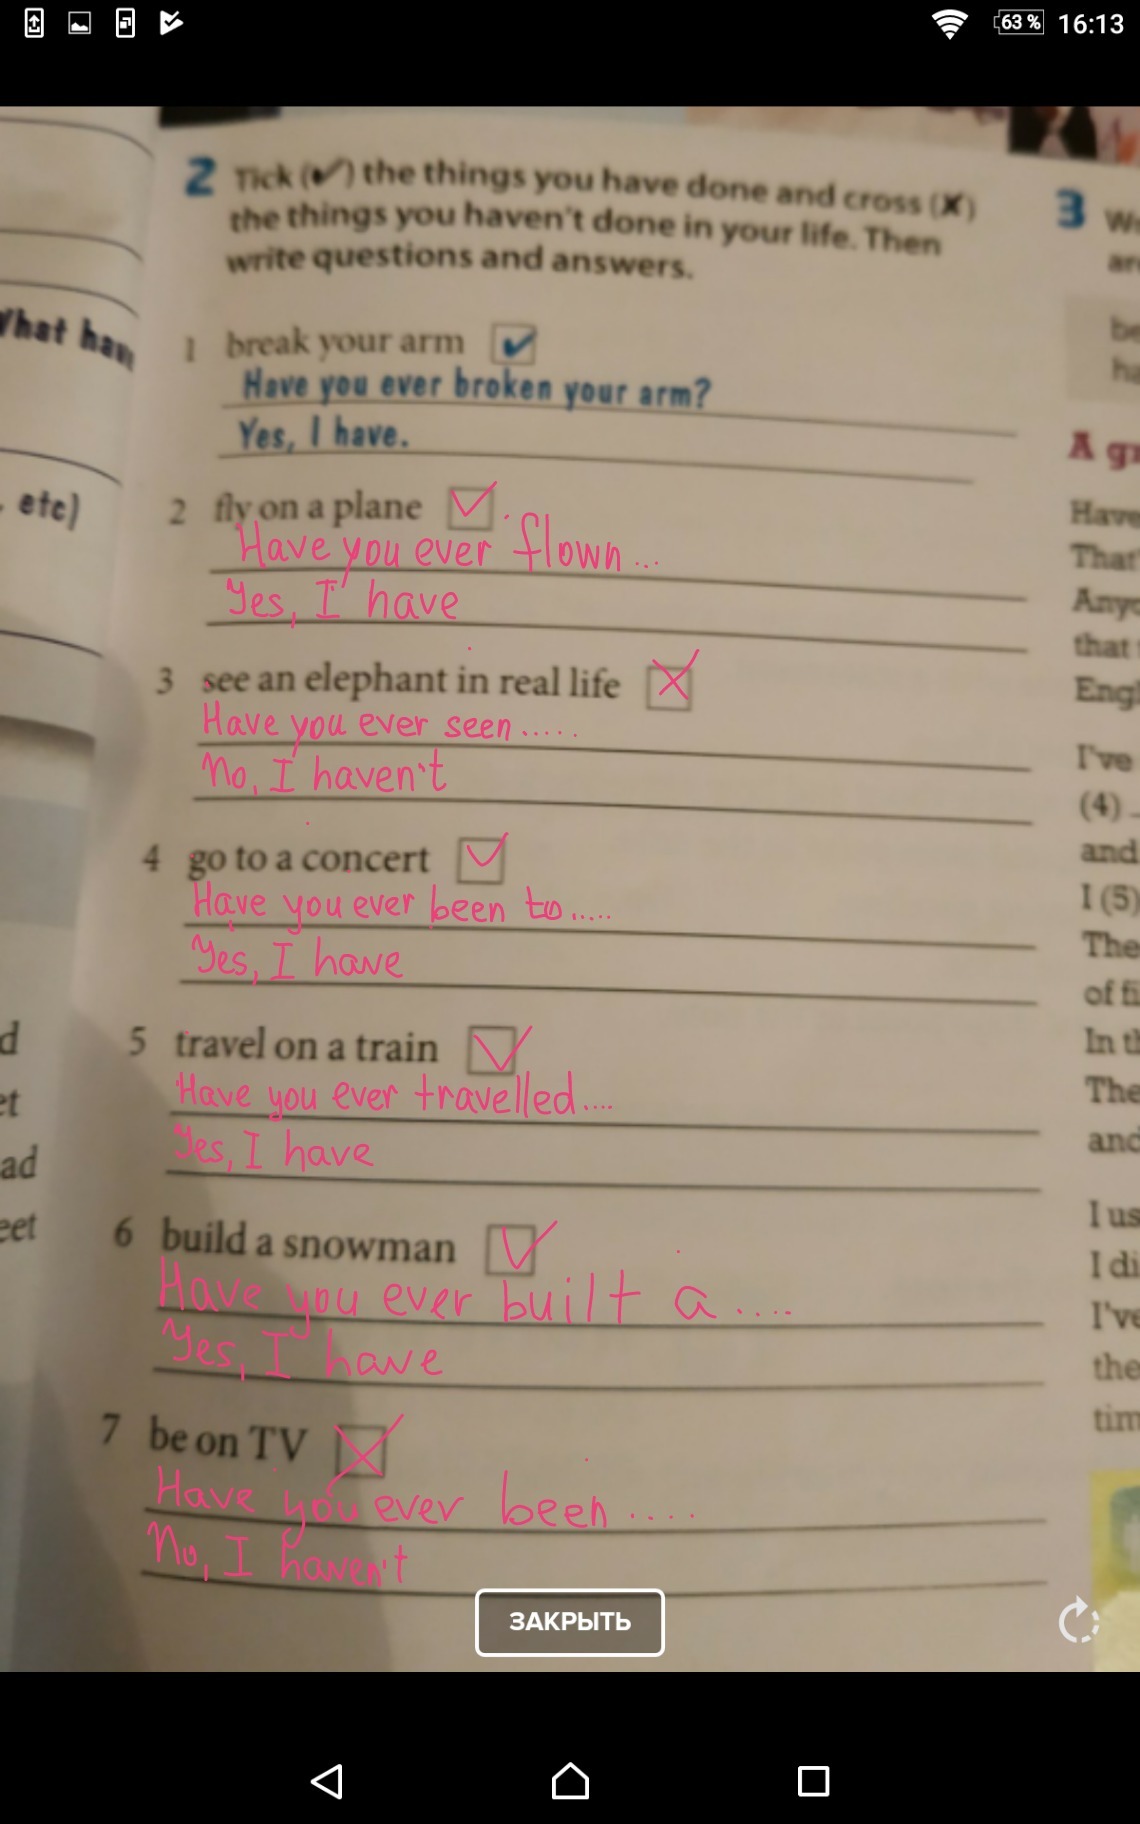 63 % 16:13
2 Tick (✔) the things you have done and cross (✘)
the things you haven't done in your life. Then
write questions and answers.
1 break your arm ✔
Have you ever broken your arm?
Yes, I have.
2 fly on a plane ✓
Have you ever flown...
Yes, I have
3 see an elephant in real life ✗
Have you ever seen.....
No, I haven't
4 go to a concert ✓
Have you ever been to.....
Yes, I have
5 travel on a train ✓
Have you ever travelled....
Yes, I have
6 build a snowman ✓
Have you ever built a....
Yes, I have
7 be on TV ✗
Have you ever been....
No, I haven't
ЗАКРЫТЬ
What hav
etc)
d
et
ad
eet
3 W
ar
be
ha
A gr
Have
That'
Anyo
that
Engl
I've
(4)
and
I (5)
The
of fi
In th
The
and
I us
I di
I've
the
tim